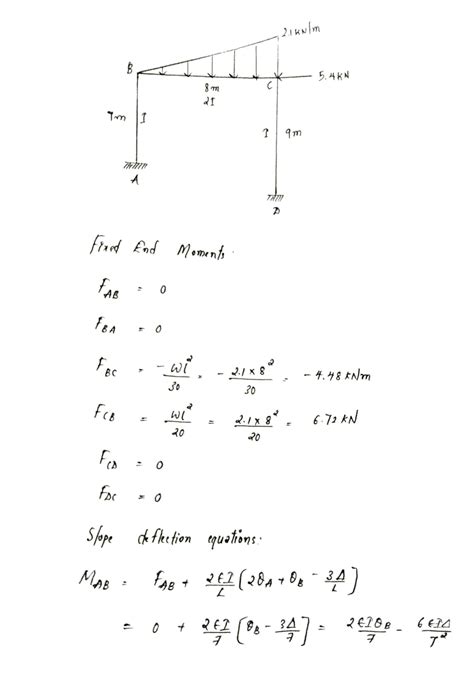 2.1 KN/m
B
5.4 KN
8m
C
2I
7m I
I 9m
A
D
Fixed End Moments.
F_AB = 0
F_BA = 0
F_BC = -Wl²/30 = -2.1 x 8²/30 = -4.48 KNm
F_CB = Wl²/20 = 2.1 x 8²/20 = 6.72 KN
F_CD = 0
F_DC = 0
Slope deflection equations.
M_AB = F_AB + 2EI/L (2θ_A + θ_B - 3Δ/L)
= 0 + 2EI/7 [θ_B - 3Δ/7] = 2EIθ_B/7 - 6EIΔ/7²